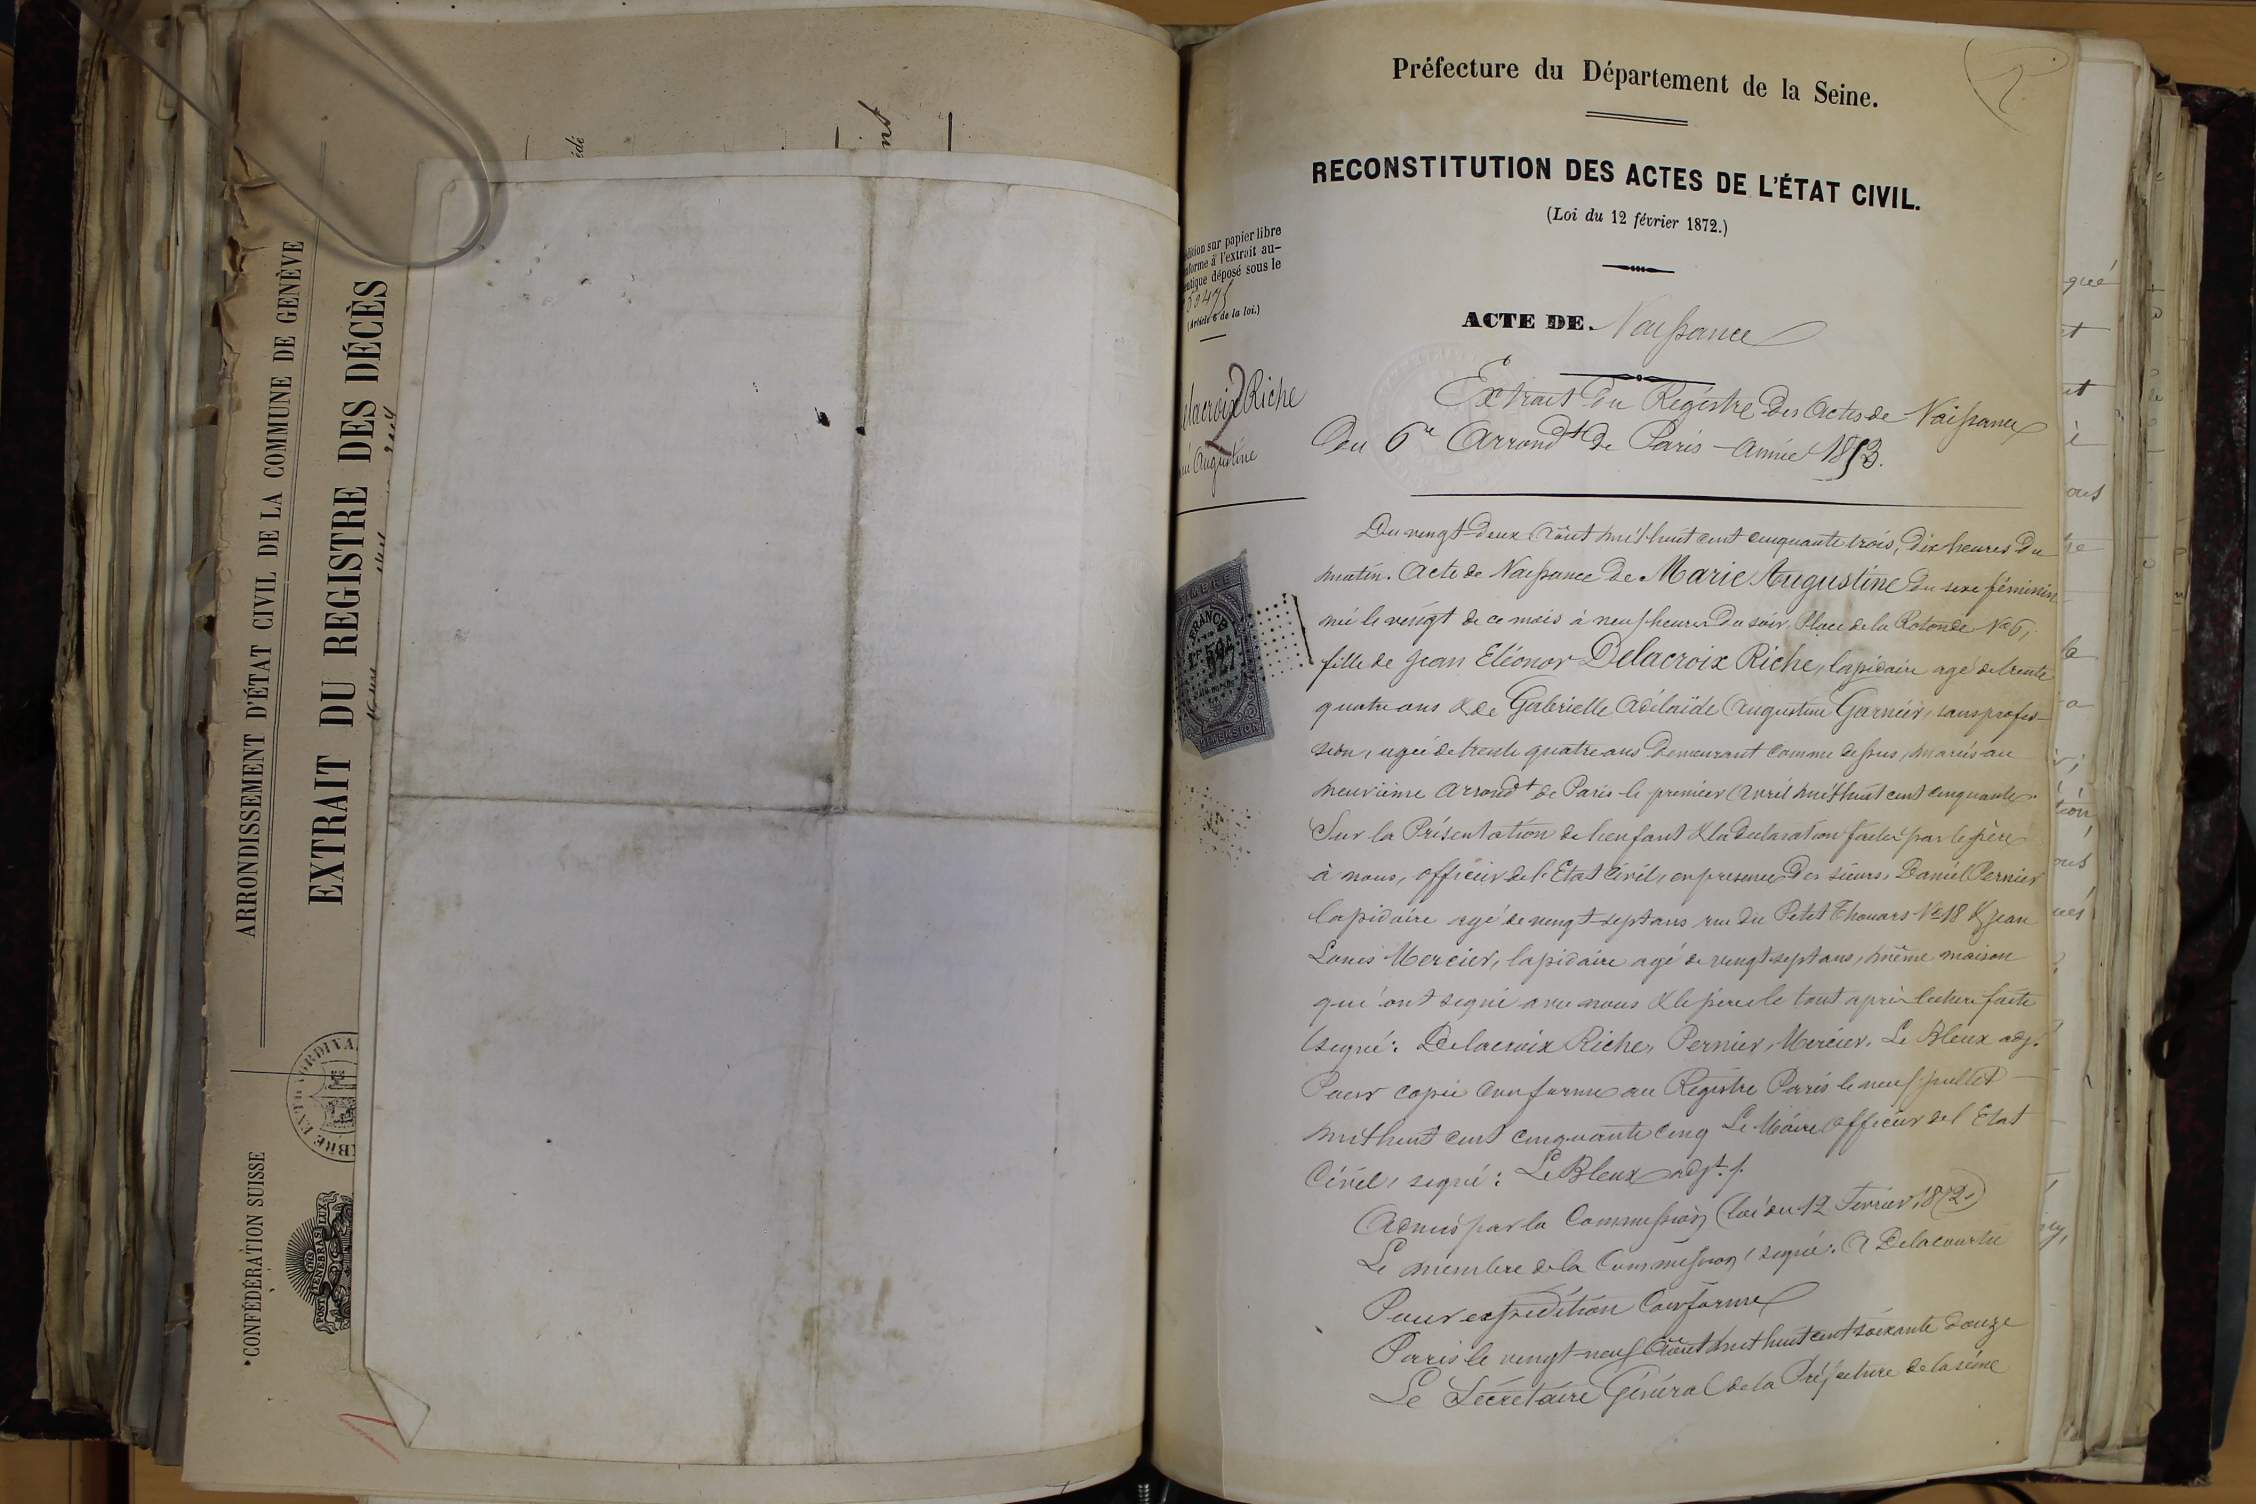 CONFÉDÉRATION SUISSE
ARRONDISSEMENT D'ÉTAT CIVIL DE LA COMMUNE DE GENÈVE
EXTRAIT DU REGISTRE DES DÉCÈS
POST TENEBRAS LUX
Préfecture du Département de la Seine.
RECONSTITUTION DES ACTES DE L'ÉTAT CIVIL.
(Loi du 12 février 1872.)
dition sur papier libre
forme à l'extrait au-
tique déposé sous le
(Article 6 de la loi.)
elacroix Riche
Augustine
2
FRANCE
DIMENSION
ACTE DE Naissance
Extrait du Registre des Actes de Naissance
du 6e Arrondt de Paris - Année 1853.
Du vingt-deux Août mil huit cent cinquante trois, dix heures du
matin. Acte de Naissance de Marie Augustine du sexe féminin
née le vingt de ce mois à neuf heures du soir Place de la Rotonde No 6,
fille de Jean Eléonor Delacroix Riche, lapidaire agé de trente
quatre ans & de Gabrielle Adélaïde Augustine Garnier, sans profes-
sion, agée de trente quatre ans demeurant comme dessus, mariés au
neuvième arrondt de Paris le premier Avril mil huit cent cinquante.
Sur la Présentation de l'enfant & la déclaration faites par le père
à nous, officier de l'Etat Civil, en présence des sieurs, Daniel Pernier
lapidaire agé de vingt-sept ans rue du Petit Thouars No 18 & Jean
Louis Mercier, lapidaire agé de vingt-sept ans, même maison
qui ont signé avec nous & le père le tout après lecture faite
signé: Delacroix Riche, Pernier, Mercier, Le Bleux adj.
Pour copie conforme au Registre Paris le neuf juillet
mil huit cent cinquante cinq Le Maire officier de l'Etat
Civil, signé: Le Bleux adjt.
Admis par la Commission (loi du 12 Février 1872)
Le membre de la Commission, signé: A Delacourtie
Pour expédition Conforme
Paris le vingt-neuf Août mil huit cent soixante douze
Le Secrétaire Général de la Préfecture de la seine